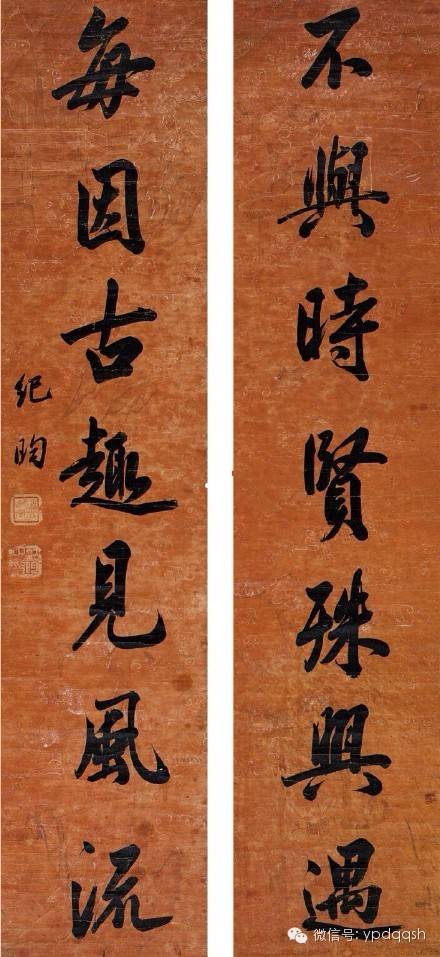 不與時賢殊興遇
每因古趣見風流
紀昀
微信号: ypdqqsh